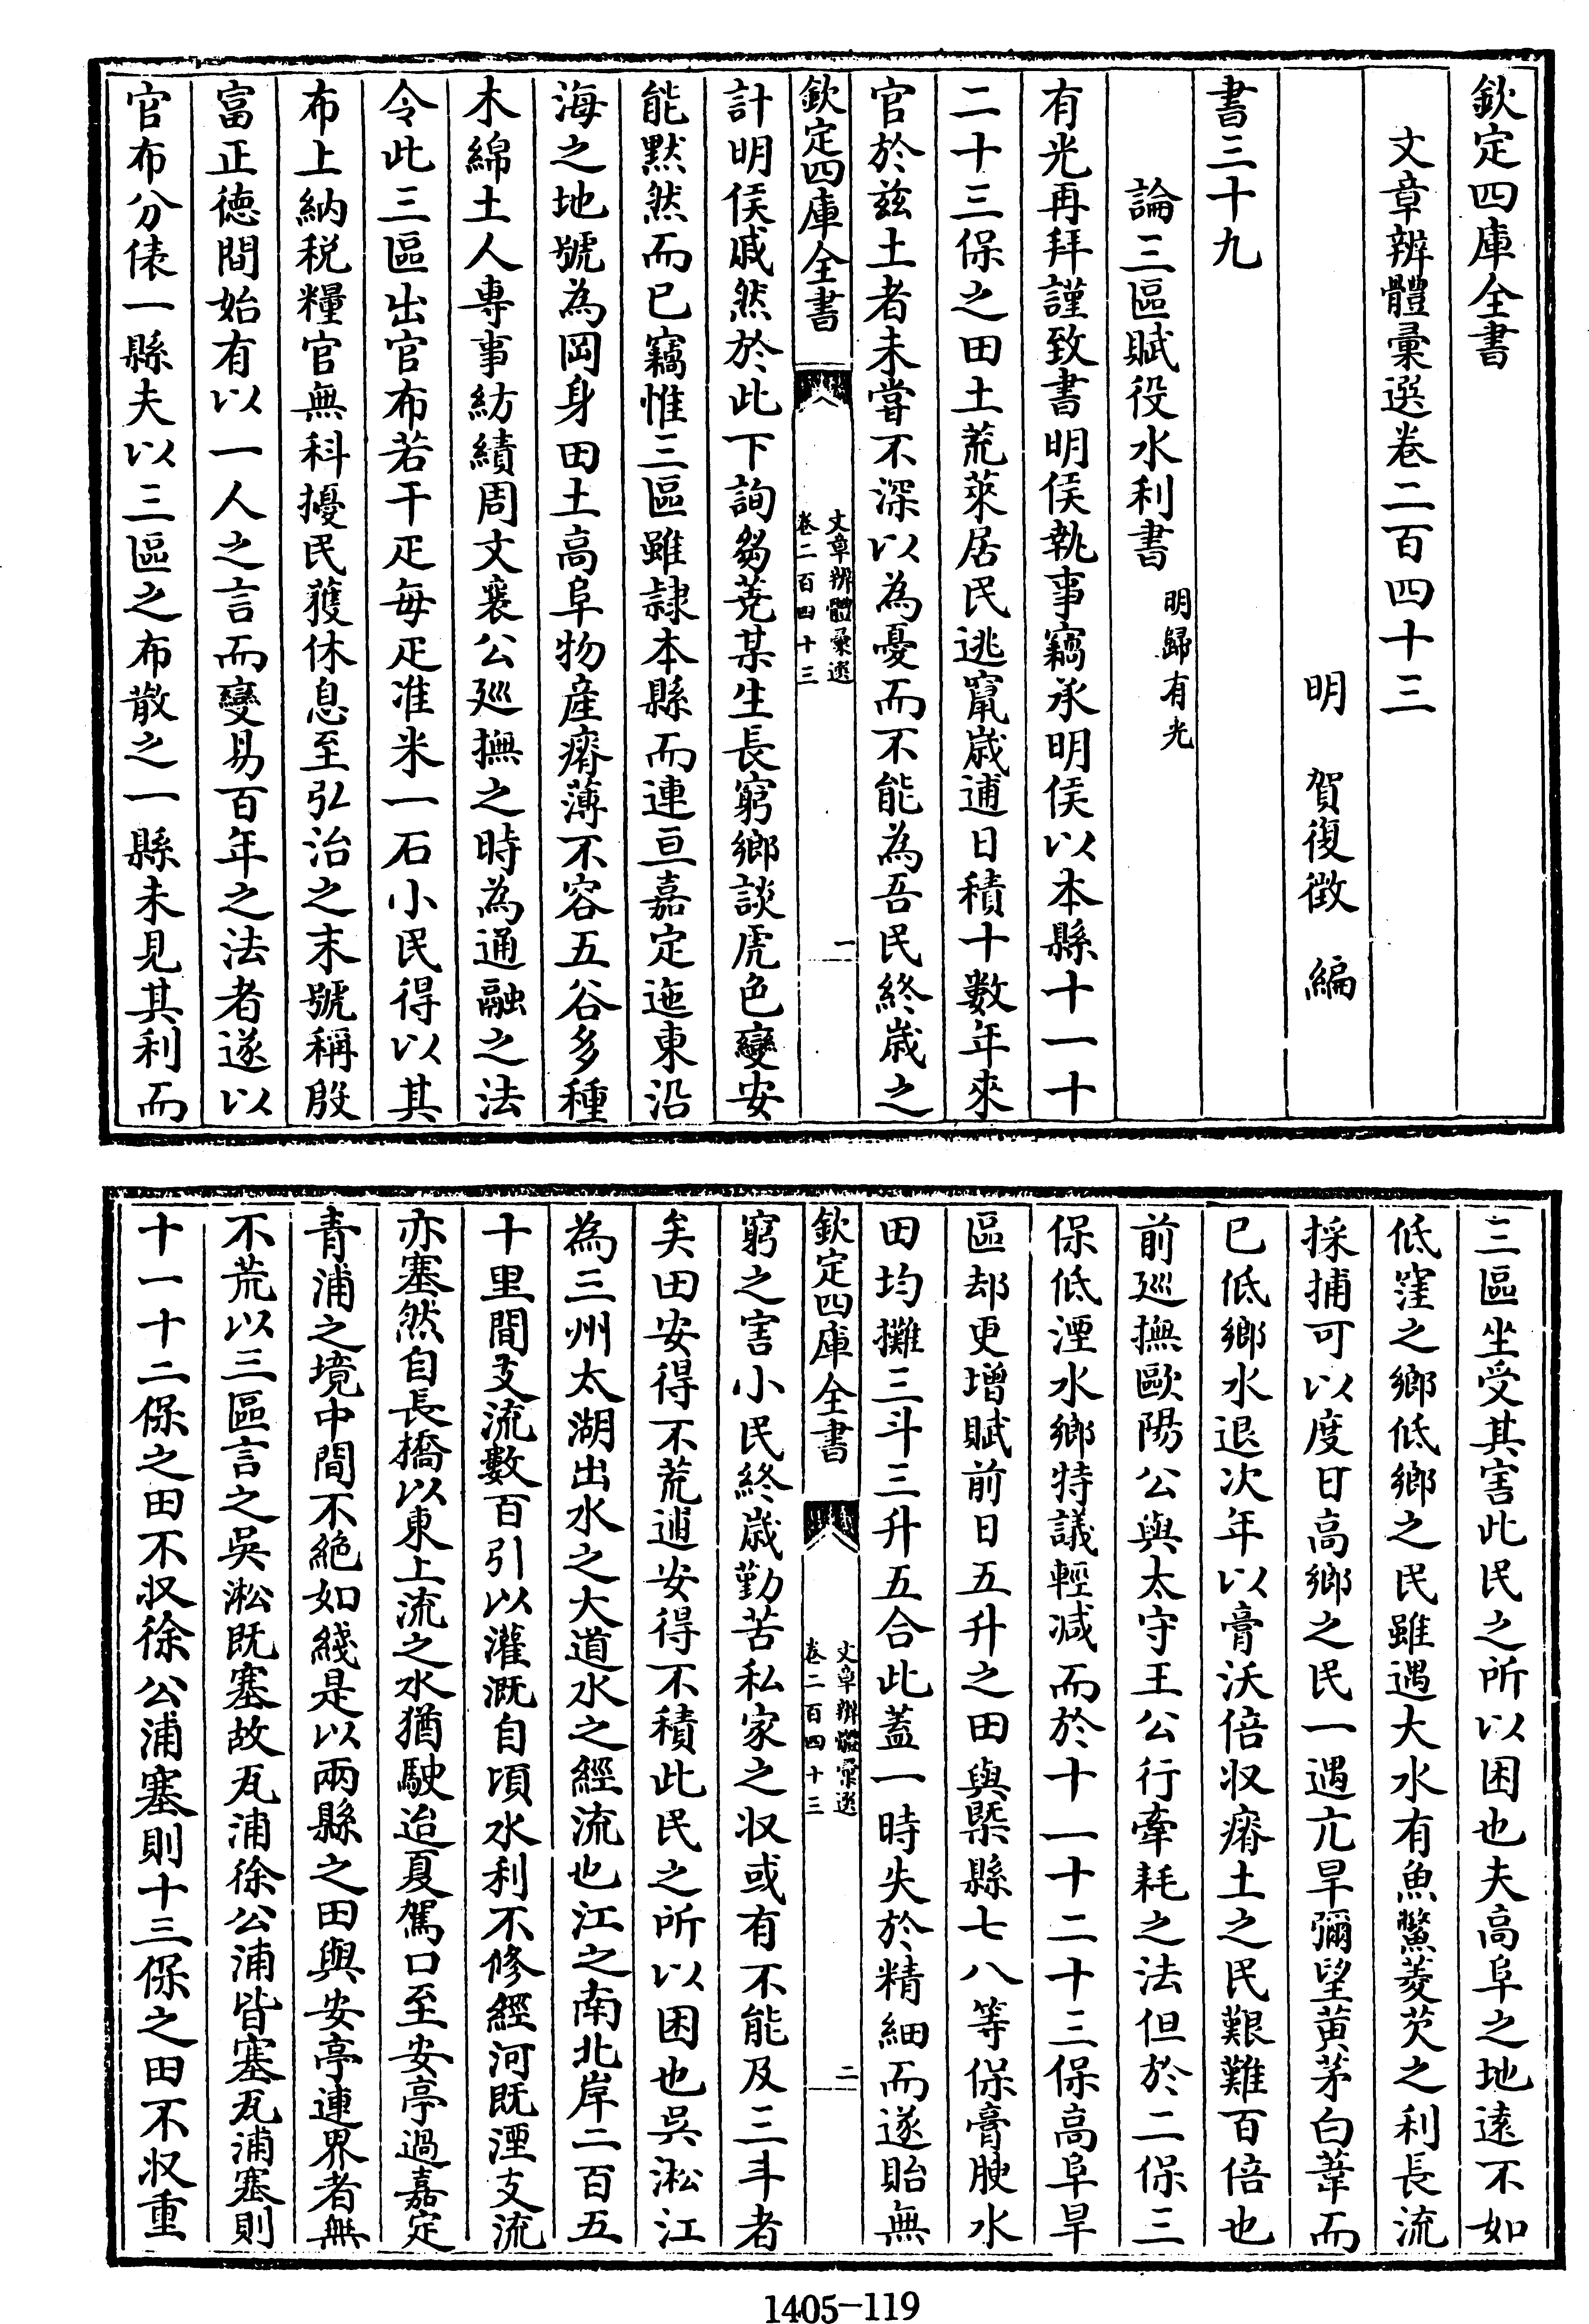 欽定四庫全書
文章辨體彙選卷二百四十三
明 賀復徵 編
書三十九
論三區賦役水利書明歸有光
有光再拜謹致書明侯執事竊承明侯以本縣十一十
二十三保之田土荒萊居民逃竄歲逋日積十數年來
官於兹土者未嘗不深以為憂而不能為吾民終歲之
欽定四庫全書
文章辨體彙選
卷二百四十三
一
計明侯戚然於此下詢芻蕘某生長窮鄉談虎色變安
能默然而已竊惟三區雖隷本縣而連亘嘉定迤東沿
海之地號為岡身田土高阜物産瘠薄不容五谷多種
木綿土人專事紡績周文襄公廵撫之時為通融之法
令此三區出官布若干疋每疋准米一石小民得以其
布上納税糧官無科擾民獲休息至弘治之末號稱殷
富正徳間始有以一人之言而變易百年之法者遂以
官布分俵一縣夫以三區之布散之一縣未見其利而
三區坐受其害此民之所以困也夫高阜之地逺不如
低窪之鄉低鄉之民雖遇大水有魚鱉菱芡之利長流
採捕可以度日高鄉之民一遇亢旱彌望黄茅白葦而
已低鄉水退次年以膏沃倍收瘠土之民艱難百倍也
前廵撫歐陽公與太守王公行牽耗之法但於二保三
保低湮水鄉特議輕减而於十一十二十三保高阜旱
區却更增賦前日五升之田與槩縣七八等保膏腴水
田均攤三斗三升五合此蓋一時失於精細而遂貽無
欽定四庫全書
文章辨體彙選
卷二百四十三
二
窮之害小民終歲勤苦私家之収或有不能及三斗者
矣田安得不荒逋安得不積此民之所以困也吳淞江
為三州太湖出水之大道水之經流也江之南北岸二百五
十里間支流數百引以灌溉自頃水利不修經河既湮支流
亦塞然自長橋以東上流之水猶駛迨夏駕口至安亭過嘉定
青浦之境中間不絶如綫是以兩縣之田與安亭連界者無
不荒以三區言之吳淞既塞故瓦浦徐公浦皆塞瓦浦塞則
十一十二保之田不収徐公浦塞則十三保之田不収重
1405—119